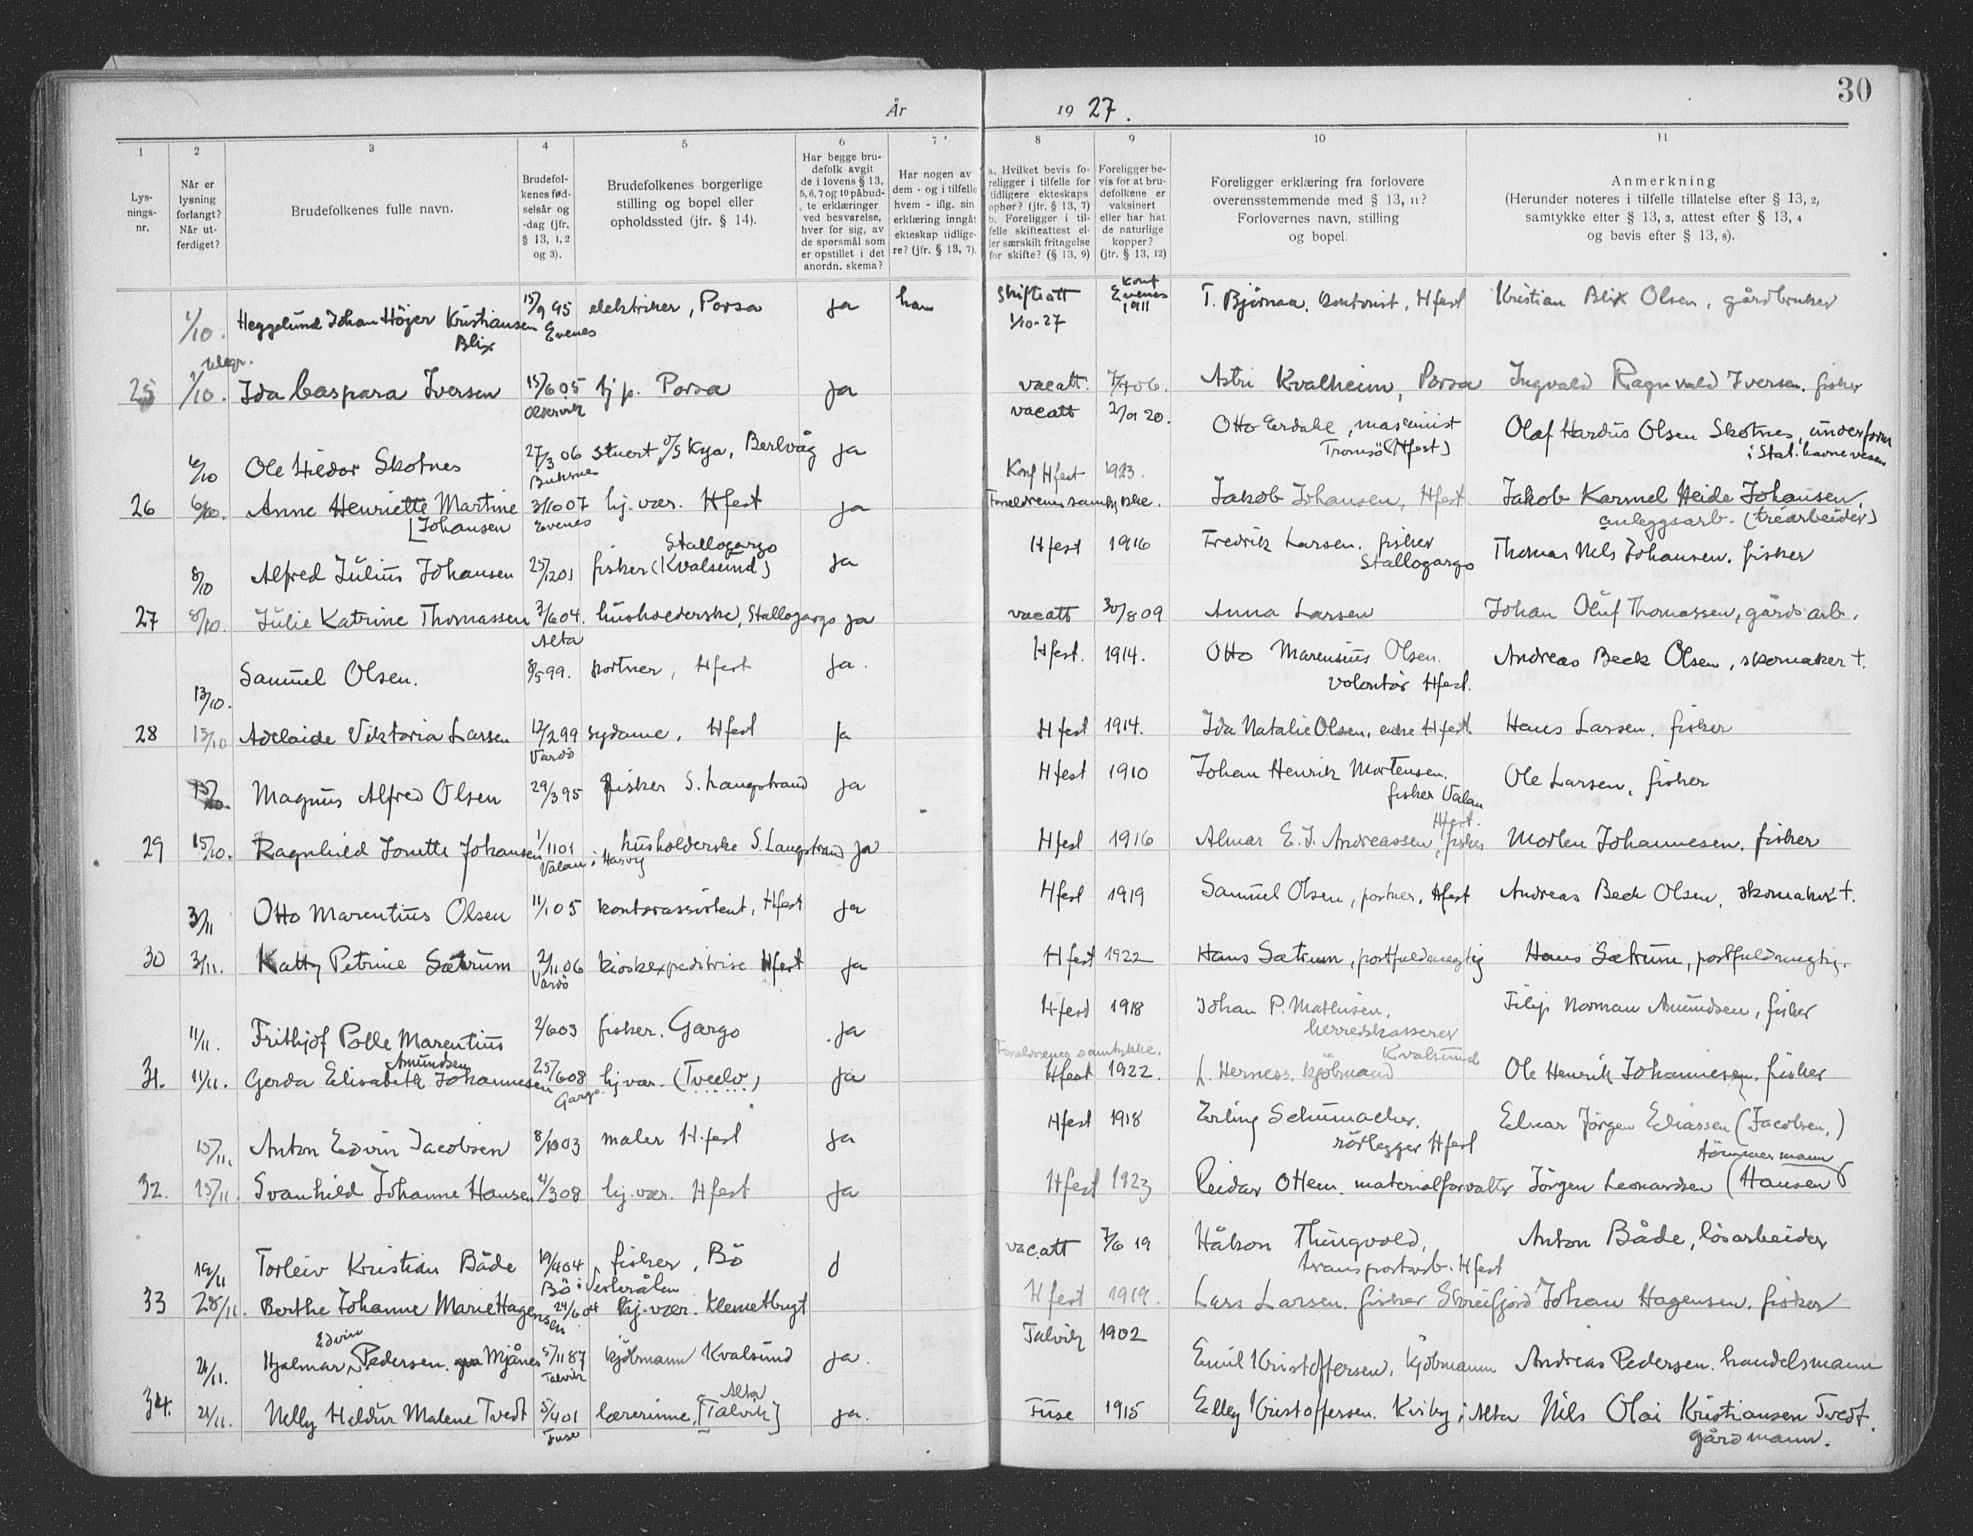 År 19 27. 30
1 2 3 4 5 6 7 8 9 10 11
Lysnings-nr.
Når er lysning forlangt? Når utferdiget?
Brudefolkenes fulle navn.
Brudefolkenes fødselsår og -dag (jfr. § 13, 1, 2 og 3).
Brudefolkenes borgerlige stilling og bopel eller opholdssted (jfr. § 14).
Har begge brudefolk avgit de i lovens § 13, 5, 6, 7 og 10 påbudte erklæringer ved besvarelse, hver for sig, av de spørsmål som er opstillet i det anordn. skema?
Har nogen av dem - og i tilfelle hvem - iflg. sin erklæring inngått ekteskap tidligere? (jfr. § 13, 7).
a. Hvilket bevis foreligger i tilfelle for tidligere ekteskaps ophør? (jfr. § 13, 7) b. Foreligger i tilfelle skifteattest eller særskilt fritagelse for skifte? (§ 13, 9)
Foreligger bevis for at brudefolkene er vaksinert eller har hat de naturlige kopper? (jfr. § 13, 12)
Foreligger erklæring fra forlovere overensstemmende med § 13, 11? Forlovernes navn, stilling og bopel.
Anmerkning (Herunder noteres i tilfelle tillatelse efter § 13, 2, samtykke efter § 13, 3, attest efter § 13, 4 og bevis efter § 13, 8).
1/10. Heggelund Johan Höyer Kristiansen Blix 15/9 95 Evenes elektriker, Porsa ja han Skifteatt 1/10-27 Konf Evenes 1911 T. Björnaa, kontorist, Hfest Kristian Blix Olsen, gårdbruker
25 1/10. telegr. Ida Caspara Iversen 15/6 05 hj p. Porsa ja vacatt. 7/4 06. Astri Kvalheim, Porsa Ingvald Ragnvald Iversen, fisker
6/10 Ole Hiedor Skotnes 27/3 06 Buksnes Stuert D/S Kya, Berlvåg ja vacatt Otto Eerdahl, maskinist Tromsö (Hfest) Olaf Hardus Olsen Skotnes, underform i Stat. havnevesen
26 6/10. Anne Henriette Martine Johansen 3/10 07 Evenes hj. vær. Hfest ja Konf Hfest 1923. Foreldrenes samtykke. Jakob Johansen, Hfest. Jakob Karmel Heide Johansen, anleggsarb. (trearbeider)
8/10 Alfred Julius Johansen 25/12 01 fisker Stallogargo (Kvalsund) ja Hfest 1916 Fredrik Larsen, fisker Stallogargo Thomas Nils Johansen, fisker
27 8/10. Julie Katrine Thomassen 7/6 04. Alta husholderske, Stallogargo ja vacatt 30/8 09 Anna Larsen Johan Oluf Thomassen, gårds arb.
13/10. Samuel Olsen. 8/5 99. portner, Hfest ja. Hfest. 1914. Otto Marensius Olsen. volontör Hfest. Andreas Beck Olsen, skomaker †.
28 13/10 Adelaide Viktoria Larsen 12/2 99 Vardö sydame, Hfest ja Hfest 1914. Ida Natalie Olsen, enke Hfest. Hans Larsen, fisker
15/10. Magnus Alfred Olsen 29/3 95 fisker S. Langstrand ja Hfest 1910 Johan Henrik Mortensen. fisker Valan Hfest. Ole Larsen, fisker
29 15/10. Ragnhild Jonette Johansen 1/11 01 Valan i Hasvig husholderske S. Langstrand ja Hfest 1916 Almar E. J. Andreassen, fisker Morten Johannesen, fisker
3/11 Otto Marentius Olsen 11/1 05 kontorassistent, Hfest ja Hfest 1919 Samuel Olsen, portner, Hfest Andreas Beck Olsen, skomaker †.
30 3/11. Katty Petrine Sætrum 2/11 06 Vardö kioskexpeditrise Hfest ja Hfest 1922 Hans Sætrum, postfuldmegtig Hans Sætrum, postfuldmegtig.
11/11. Frithjof Polle Marentius Amundsen 2/6 03 fisker. Gargo ja Hfest 1918 Johan P. Mathisen, herredskasserer Kvalsund Filip Norman Amundsen, fisker
31. 11/11. Gerda Elisabeth Johannesen 25/6 08 Gargo hj. vær. (Tveelv) ja Foreldrenes samtykke. Hfest 1922. L. Herness, kjöbmand Ole Henrik Johannesen, fisker
15/11. Anton Edvin Jacobsen 8/10 03 maler Hfest ja Hfest 1918 Erling Schumacher, rörlegger Hfest Edvar Jörgen Eliassen (Jacobsen,) tömmermann
32. 15/11. Svanhild Johanne Hansen 4/3 08 hj. vær. Hfest ja Hfest 1923 Reidar Ottem, materialforvalter Jörgen Leonardsen (Hansen)
19/11 Torleiv Kristian Både 19/4 04 Bö i Vesterålen fisker, Bö d vac.att 7/6 19 Håkon Thingvold, transportarb. Hfest Anton Både, lösarbeider
33 28/11. Berthe Johanne Marie Hagensen 24/6 04 hj. vær. Klemetbugt Hfest 1919. Lars Larsen, fisker Skreifjord Johan Hagensen, fisker
21/11. Hjalmar Edvin Pedersen Mjånes 5/11 87 Talvik kjöbmann Kvalsund ja. Talvik 1902 Emil Kristoffersen, kjöbmann Andreas Pedersen, handelsmann
34. 21/11. Nelly Hildur Malene Tvedt 5/4 01 Fuse lærerinne, Alta [Talvik] ja. Fuse 1915 Elley Kristoffersen, Kviby i Alta Nils Olai Kristiansen Tvedt, gårdmann.